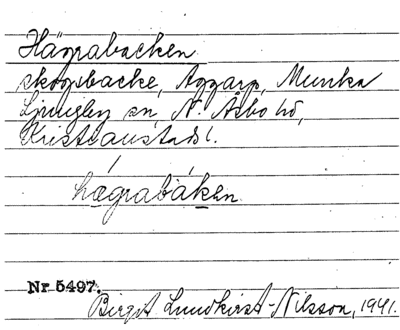 Hägrabacken
skogsbacke, Aggarp, Munka
Ljungby sn, N. Åsbo hd,
Kristianstads l.
hǽgrabáken
Nr 5497.
Birgit Lundkvist-Nilsson, 1941.